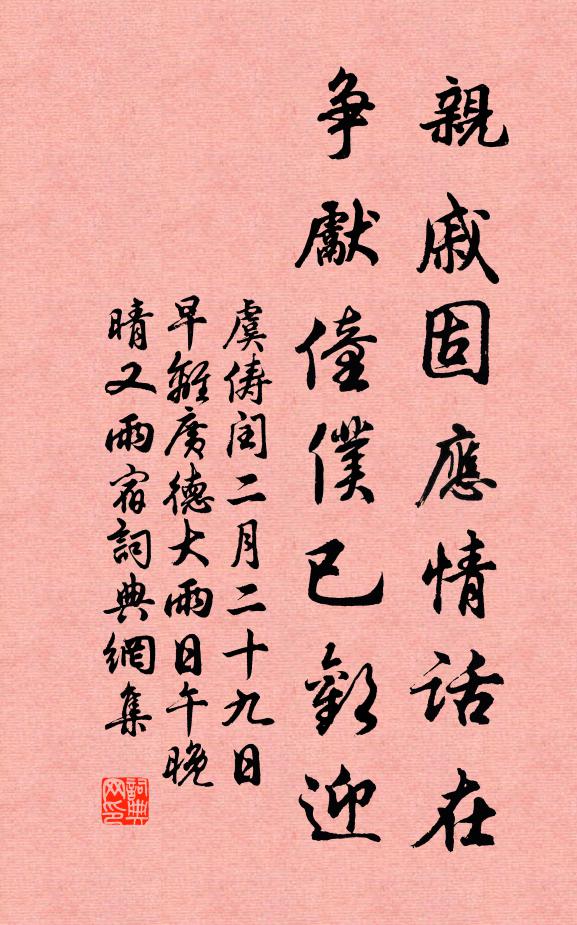 親戚固應情話在
争獻僮僕已歡迎
虞儔閏二月二十九日
早離廣德大雨日午晚
晴又雨宿詞典網集
詞典
网印